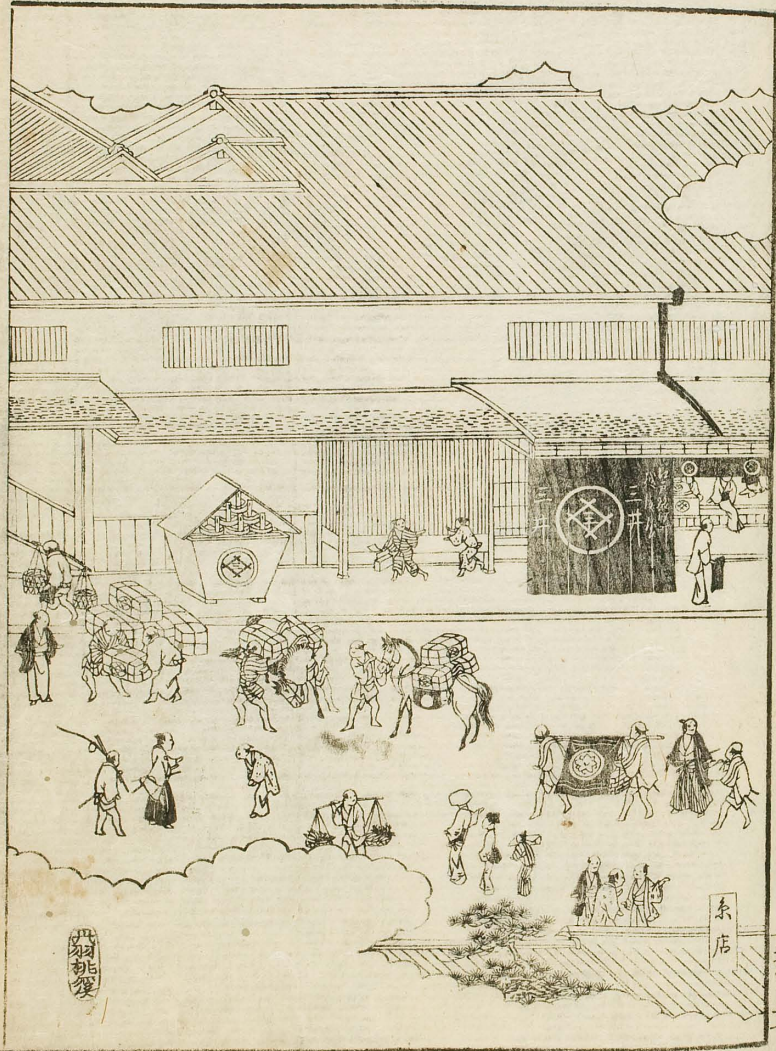 三井
三井
糸店
丹羽桃溪